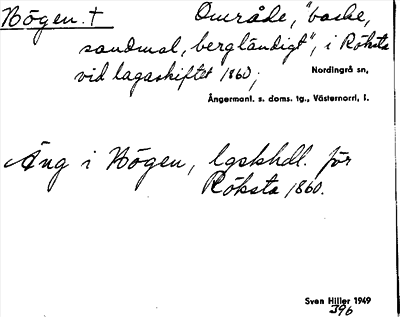 Bögen. † Område, "backe,
sandmal, bergländigt", i Röksta
vid lagaskiftet 1860;
Nordingrå sn,
Ångermanl. s. doms. tg., Västernorrl. l.
Äng i Bögen, lgskhdl. för
Röksta 1860.
Sven Hiller 1949
396